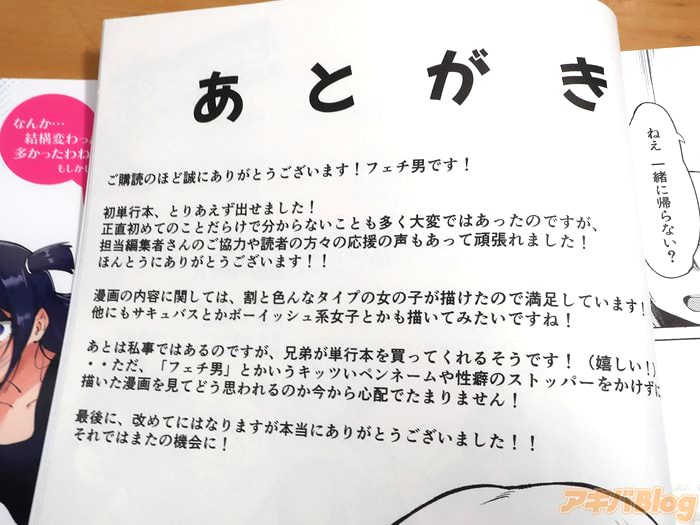 あとがき
ご購読のほど誠にありがとうございます！フェチ男です！
初単行本、とりあえず出せました！
正直初めてのことだらけで分からないことも多く大変ではあったのですが、
担当編集者さんのご協力や読者の方々の応援の声もあって頑張れました！
ほんとうにありがとうございます！！
漫画の内容に関しては、割と色んなタイプの女の子が描けたので満足しています！
他にもサキュバスとかボーイッシュ系女子とかも描いてみたいですね！
あとは私事ではあるのですが、兄弟が単行本を買ってくれるそうです！（嬉しい！）
・・ただ、「フェチ男」とかいうキッツいペンネームや性癖のストッパーをかけずに
描いた漫画を見てどう思われるのか今から心配でたまりません！
最後に、改めてにはなりますが本当にありがとうございました！！
それではまたの機会に！
なんか…
結構変わっ
多かったわね
もしかし
ねえ 一緒に帰らない？
アキバBlog